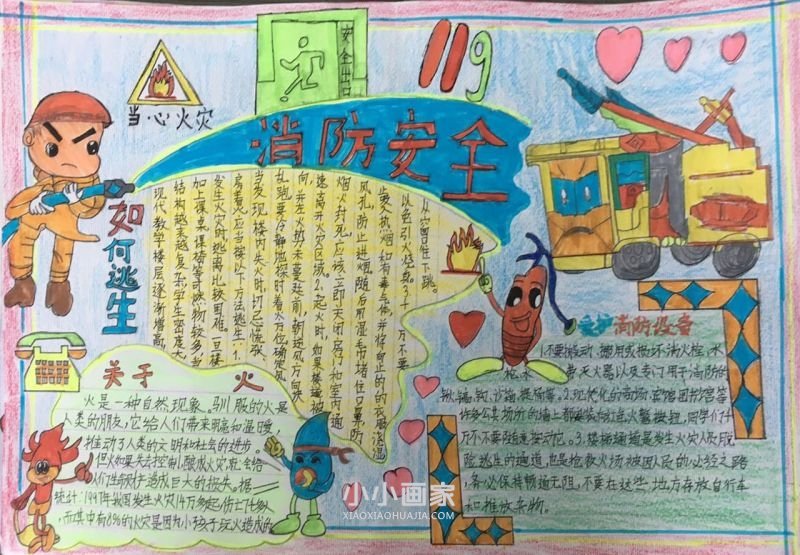 当心火灾
安全出口
119
消防安全
如何逃生
现代教学楼层逐渐增高,
结构越来越复杂,学生密度大,
加上课桌、课椅等可燃物较多,
发生火灾时,逃离比较困难。一旦楼
房着火,应当按以下方法逃生:1.
当发现楼内失火时,切忌慌张、
乱跑,要冷静地探明着火方位,确定风
向,并在火势未蔓延前,朝逆风方向快
速离开火灾区域。2.起火时,如果楼道被
烟火封死,应该立即关闭房门和室内通
风孔,防止进烟。随后用湿毛巾堵住口鼻,防
止吸入热烟和有毒气体,并将
以免引火烧身。
关于火
火是一种自然现象。驯服的火是
人类的朋友,它给人们带来光明和温暖,
推动了人类的文明和社会的进步。
但火如果失去控制,酿成火灾,就会给
人们生命财产造成巨大的损失。据
统计:1997年我国发生火灾14万多起,
而其中有8%的火灾是因为小孩子玩火造成的
爱护消防设备
1.不要挪动、搬用或损坏消火栓、水
枪、水带、灭火器以及专门用于消防的
锹、镐、钩、沙箱、提桶等。2.现代化的商场、宾馆、图书馆等
许多公共场所的墙上都安装有红色火警按钮,同学们千
万不不要随意按动它。3.楼梯通道是发生火灾人员脱
险逃生的通道,也是抢救火场被困人员的必经之路
,务必保持畅通无阻,不要在这些地方存放自行车
和堆放杂物。
小小画家
XIAOXIAOHUAJIA.COM